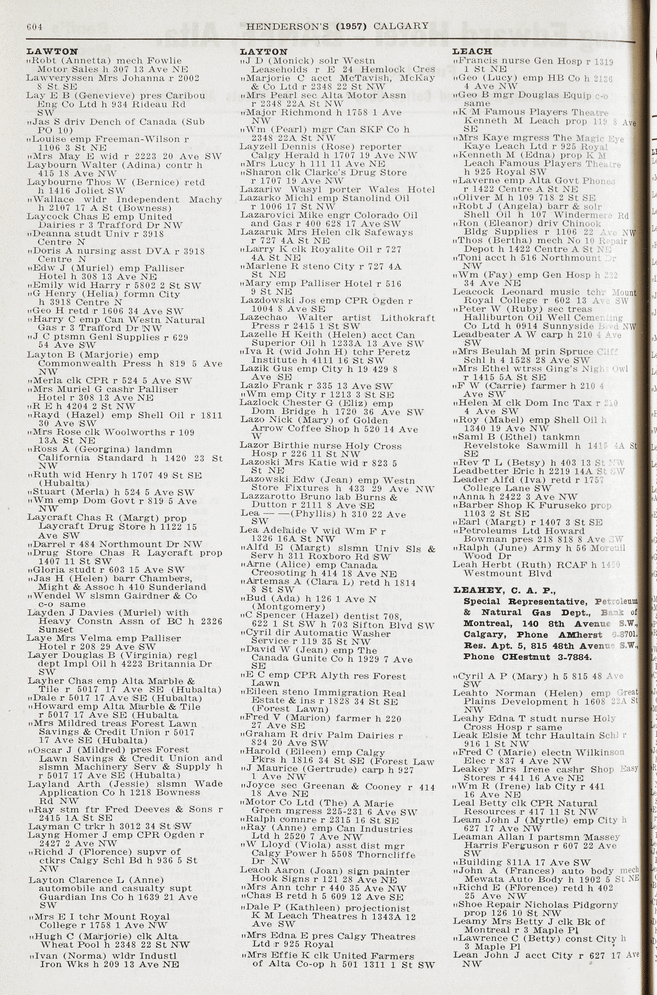 604
HENDERSON'S (1957) CALGARY
LAWTON
"Robt (Annetta) mech Fowlie
Motor Sales h 307 13 Ave NE
Lawveryssen Mrs Johanna r 2002
8 St SE
Lay E B (Genevieve) pres Caribou
Eng Co Ltd h 934 Rideau Rd
SW
"Jas S driv Dench of Canada (Sub
PO 10)
"Louise emp Freeman-Wilson r
1106 3 St NE
"Mrs May E wid r 2223 20 Ave SW
Laybourn Walter (Adina) contr h
415 18 Ave NW
Laybourne Thos W (Bernice) retd
h 1416 Joliet SW
"Wallace wldr Independent Machy
h 2107 17 A St (Bowness)
Laycock Chas E emp United
Dairies r 3 Trafford Dr NW
"Deanna studt Univ r 3918
Centre N
"Doris A nursing asst DVA r 3918
Centre N
"Edw J (Muriel) emp Palliser
Hotel h 308 13 Ave NE
"Emily wid Harry r 5802 2 St SW
"G Henry (Helia) formn City
h 3918 Centre N
"Geo H retd r 1606 34 Ave SW
"Harry C emp Can Westn Natural
Gas r 3 Trafford Dr NW
"J C ptsmn Genl Supplies r 629
54 Ave SW
Layton B (Marjorie) emp
Commonwealth Press h 819 5 Ave
NW
"Merla clk CPR r 524 5 Ave SW
"Mrs Muriel G cashr Palliser
Hotel r 308 13 Ave NE
"R E h 4204 2 St NW
"Rayd (Hazel) emp Shell Oil r 1811
30 Ave SW
"Mrs Rose clk Woolworths r 109
13A St NE
"Ross A (Georgina) landmn
California Standard h 1420 23 St
NW
"Ruth wid Henry h 1707 49 St SE
(Hubalta)
"Stuart (Merla) h 524 5 Ave SW
"Wm emp Dom Govt r 819 5 Ave
NW
Laycraft Chas R (Margt) prop
Laycraft Drug Store h 1122 15
Ave SW
"Darrel r 484 Northmount Dr NW
"Drug Store Chas R Laycraft prop
1407 11 St SW
"Gloria studt r 603 15 Ave SW
"Jas H (Helen) barr Chambers,
Might & Assoc h 410 Sunderland
"Wendel W slsmn Gairdner & Co
c-o same
Layden J Davies (Muriel) with
Heavy Constn Assn of BC h 2326
Sunset
Laye Mrs Velma emp Palliser
Hotel r 208 29 Ave SW
Layer Douglas B (Virginia) regl
dept Impl Oil h 4223 Britannia Dr
SW
Layher Chas emp Alta Marble &
Tile r 5017 17 Ave SE (Hubalta)
"Dale r 5017 17 Ave SE (Hubalta)
"Howard emp Alta Marble & Tile
r 5017 17 Ave SE (Hubalta
"Mrs Mildred treas Forest Lawn
Savings & Credit Union r 5017
17 Ave SE (Hubalta)
"Oscar J (Mildred) pres Forest
Lawn Savings & Credit Union and
slsmn Machinery Serv & Supply h
r 5017 17 Ave SE (Hubalta)
Layland Arth (Jessie) slsmn Wade
Application Co h 1218 Bowness
Rd NW
"Ray stm ftr Fred Deeves & Sons r
2415 1A St SE
Layman C trkr h 3012 34 St SW
Layng Homer J emp CPR Ogden r
2427 2 Ave NW
"Richd J (Florence) supvr of
ctkrs Calgy Schl Bd h 936 5 St
NW
Layton Clarence L (Anne)
automobile and casualty supt
Guardian Ins Co h 1639 21 Ave
SW
"Mrs E I tchr Mount Royal
College r 1758 1 Ave NW
"Hugh C (Marjorie) clk Alta
Wheat Pool h 2348 22 St NW
"Ivan (Norma) wldr Industl
Iron Wks h 209 13 Ave NE
LAYTON
"J D (Monick) solr Westn
Leaseholds r E 24 Hemlock Cres
"Marjorie C acct McTavish, McKay
& Co Ltd r 2348 22 St NW
"Mrs Pearl sec Alta Motor Assn
r 2348 22A St NW
"Major Richmond h 1758 1 Ave
NW
"Wm (Pearl) mgr Can SKF Co h
2348 22A St NW
Layzell Dennis (Rose) reporter
Calgy Herald h 1707 19 Ave NW
"Mrs Lucy h 111 11 Ave NE
"Sharon clk Clarke's Drug Store
r 1707 19 Ave NW
Lazariw Wasyl porter Wales Hotel
Lazarko Michl emp Stanolind Oil
r 1006 17 St NW
Lazarovici Mike engr Colorado Oil
and Gas r 400 628 17 Ave SW
Lazaruk Mrs Helen clk Safeways
r 727 4A St NE
"Larry K clk Royalite Oil r 727
4A St NE
"Marlene R steno City r 727 4A
St NE
"Mary emp Palliser Hotel r 516
9 St NE
Lazdowski Jos emp CPR Ogden r
1004 8 Ave SE
Lazechao Walter artist Lithokraft
Press r 2415 1 St SW
Lazelle H Keith (Helen) acct Can
Superior Oil h 1233A 13 Ave SW
"Iva R (wid John H) tchr Peretz
Institute h 4111 16 St SW
Lazik Gus emp City h 19 429 8
Ave SE
Lazlo Frank r 335 13 Ave SW
"Wm emp City r 1213 3 St SE
Lazlock Chester G (Eliz) emp
Dom Bridge h 1720 36 Ave SW
Lazo Nick (Mary) of Golden
Arrow Coffee Shop h 520 14 Ave
W
Lazor Birthie nurse Holy Cross
Hosp r 226 11 St NW
Lazoski Mrs Katie wid r 823 5
St NE
Lazowski Edw (Jean) emp Westn
Store Fixtures h 433 29 Ave NW
Lazzarotto Bruno lab Burns &
Dutton r 2111 8 Ave SE
Lea — —(Phyllis) h 310 22 Ave
SW
Lea Adelaide V wid Wm F r
1326 16A St NW
"Alfd E (Margt) slsmn Univ Sls &
Serv h 311 Roxboro Rd SW
"Arne (Alice) emp Canada
Creosoting h 414 18 Ave NE
"Artemas A (Clara L) retd h 1814
8 St SW
"Bud (Ada) h 126 1 Ave N
(Montgomery)
"C Spencer (Hazel) dentist 708,
622 1 St SW h 703 Sifton Blvd SW
"Cyril dir Automatic Washer
Service r 119 35 St NW
"David W (Jean) emp The
Canada Gunite Co h 1929 7 Ave
SE
"E C emp CPR Alyth res Forest
Lawn
"Eileen steno Immigration Real
Estate & ins r 1828 34 St SE
(Forest Lawn)
"Fred V (Marion) farmer h 220
27 Ave SW
"Graham R driv Palm Dairies r
824 20 Ave SW
"Harold (Eileen) emp Calgy
Pkrs h 1816 34 St SE (Forest Law
"J Maurice (Gertrude) carp h 927
1 Ave NW
"Joyce sec Greenan & Cooney r 414
18 Ave NE
"Motor Co Ltd (The) A Marie
Green mgress 225-231 6 Ave SW
"Ralph comnre r 2315 16 St SE
"Ray (Anne) emp Can Industries
Ltd h 2520 7 Ave NW
"W Lloyd (Viola) asst dist mgr
Calgy Power h 5508 Thorncliffe
Dr NW
Leach Aaron (Joan) sign painter
Hook Signs r 121 28 Ave NE
"Mrs Ann tchr r 440 35 Ave NW
"Chas B retd h 5 609 12 Ave SE
"Dale P (Kathleen) projectionist
K M Leach Theatres h 1343A 12
Ave SW
"Mrs Edna E pres Calgy Theatres
Ltd r 925 Royal
"Mrs Effie K clk United Farmers
of Alta Co-op h 501 1311 1 St SW
LEACH
"Francis nurse Gen Hosp r 1319
1 St NE
"Geo (Lucy) emp HB Co h 2136
4 Ave NW
"Geo B mgr Douglas Equip c-o
same
"K M Famous Players Theatre
Kenneth M Leach prop 119 8 Ave
SE
"Mrs Kaye mgress The Magic Eye
Kaye Leach Ltd r 925 Royal
"Kenneth M (Edna) prop K M
Leach Famous Players Theatre
h 925 Royal SW
"Laverne emp Alta Govt Phones
r 1422 Centre A St NE
"Oliver M h 109 718 2 St SE
"Robt J (Angela) barr & solr
Shell Oil h 107 Windermere Rd
"Ron (Eleanor) driv Chinook
Bldg Supplies r 1106 22 Ave NW
"Thos (Bertha) mech No 10 Repair
Depot h 1422 Centre A St NE
"Toni acct h 516 Northmount Dr
NW
"Wm (Fay) emp Gen Hosp h
34 Ave NE
Leacock Leonard music tchr Mount
Royal College r 602 13 Ave SW
"Peter W (Ruby) sec treas
Halliburton Oil Well Cementing
Co Ltd h 0914 Sunnyside Blvd NW
Leadbeater A W carp h 210 4 Ave
SW
"Mrs Beulah M prin Spruce Cliff
Schl h 4 1528 28 Ave SW
"Mrs Ethel wtrss Ging's Night Owl
r 1415 5A St SE
"F W (Carrie) farmer h 210 4
Ave SW
"Helen M clk Dom Inc Tax r 210
4 Ave SW
"Roy (Mabel) emp Shell Oil h
1340 19 Ave NW
"Saml B (Ethel) tankmn
Revelstoke Sawmill h 1415 4A St
SE
"Rev T L (Betsy) h 403 13 St NW
Leadbetter Eric h 2219 14A St SW
Leader Alfd (Iva) retd r 1757
College Lane SW
"Anna h 2422 3 Ave NW
"Barber Shop K Furuseko prop
1103 2 St SE
"Earl (Margt) r 1407 3 St SE
"Petroleums Ltd Howard
Bowman pres 218 818 8 Ave SW
"Ralph (June) Army h 56 Moreuil
Wood Dr
Leah Herbt (Ruth) RCAF h 1450
Westmount Blvd
LEAHEY, C. A. P.,
Special Representative, Petroleum
& Natural Gas Dept., Bank of
Montreal, 140 8th Avenue S.W.,
Calgary, Phone AMherst 6-8701.
Res. Apt. 5, 815 48th Avenue S.W.,
Phone CHestnut 3-7884.
"Cyril A P (Mary) h 5 815 48 Ave
SW
Leahto Norman (Helen) emp Great
Plains Development h 1608 22A St
NW
Leahy Edna T studt nurse Holy
Cross Hosp r same
Leak Elsie M tchr Haultain Schl r
916 1 St NW
"Fred C (Marie) electn Wilkinson
Elec r 837 4 Ave NW
Leakey Mrs Irene cashr Shop Easy
Stores r 441 16 Ave NE
"Wm R (Irene) lab City r 441
16 Ave NE
Leal Betty clk CPR Natural
Resources r 417 11 St NW
Leam John J (Merle) emp City h
627 17 Ave NW
Leaman Allan I partsmn Massey
Harris Ferguson r 607 22 Ave
SW
"Building 811A 17 Ave SW
"John A (Frances) auto body mech
Mewata Auto Body h 1902 5 St NE
"Richd E (Florence) retd h 402
25 Ave NW
"Shoe Repair Nicholas Pidgorny
prop 126 10 St NW
Leamy Mrs Betty J clk Bk of
Montreal r 3 Maple Pl
"Lawrence C (Betty) const City h
3 Maple Pl
Lean John J acct City r 627 17 Ave
NW